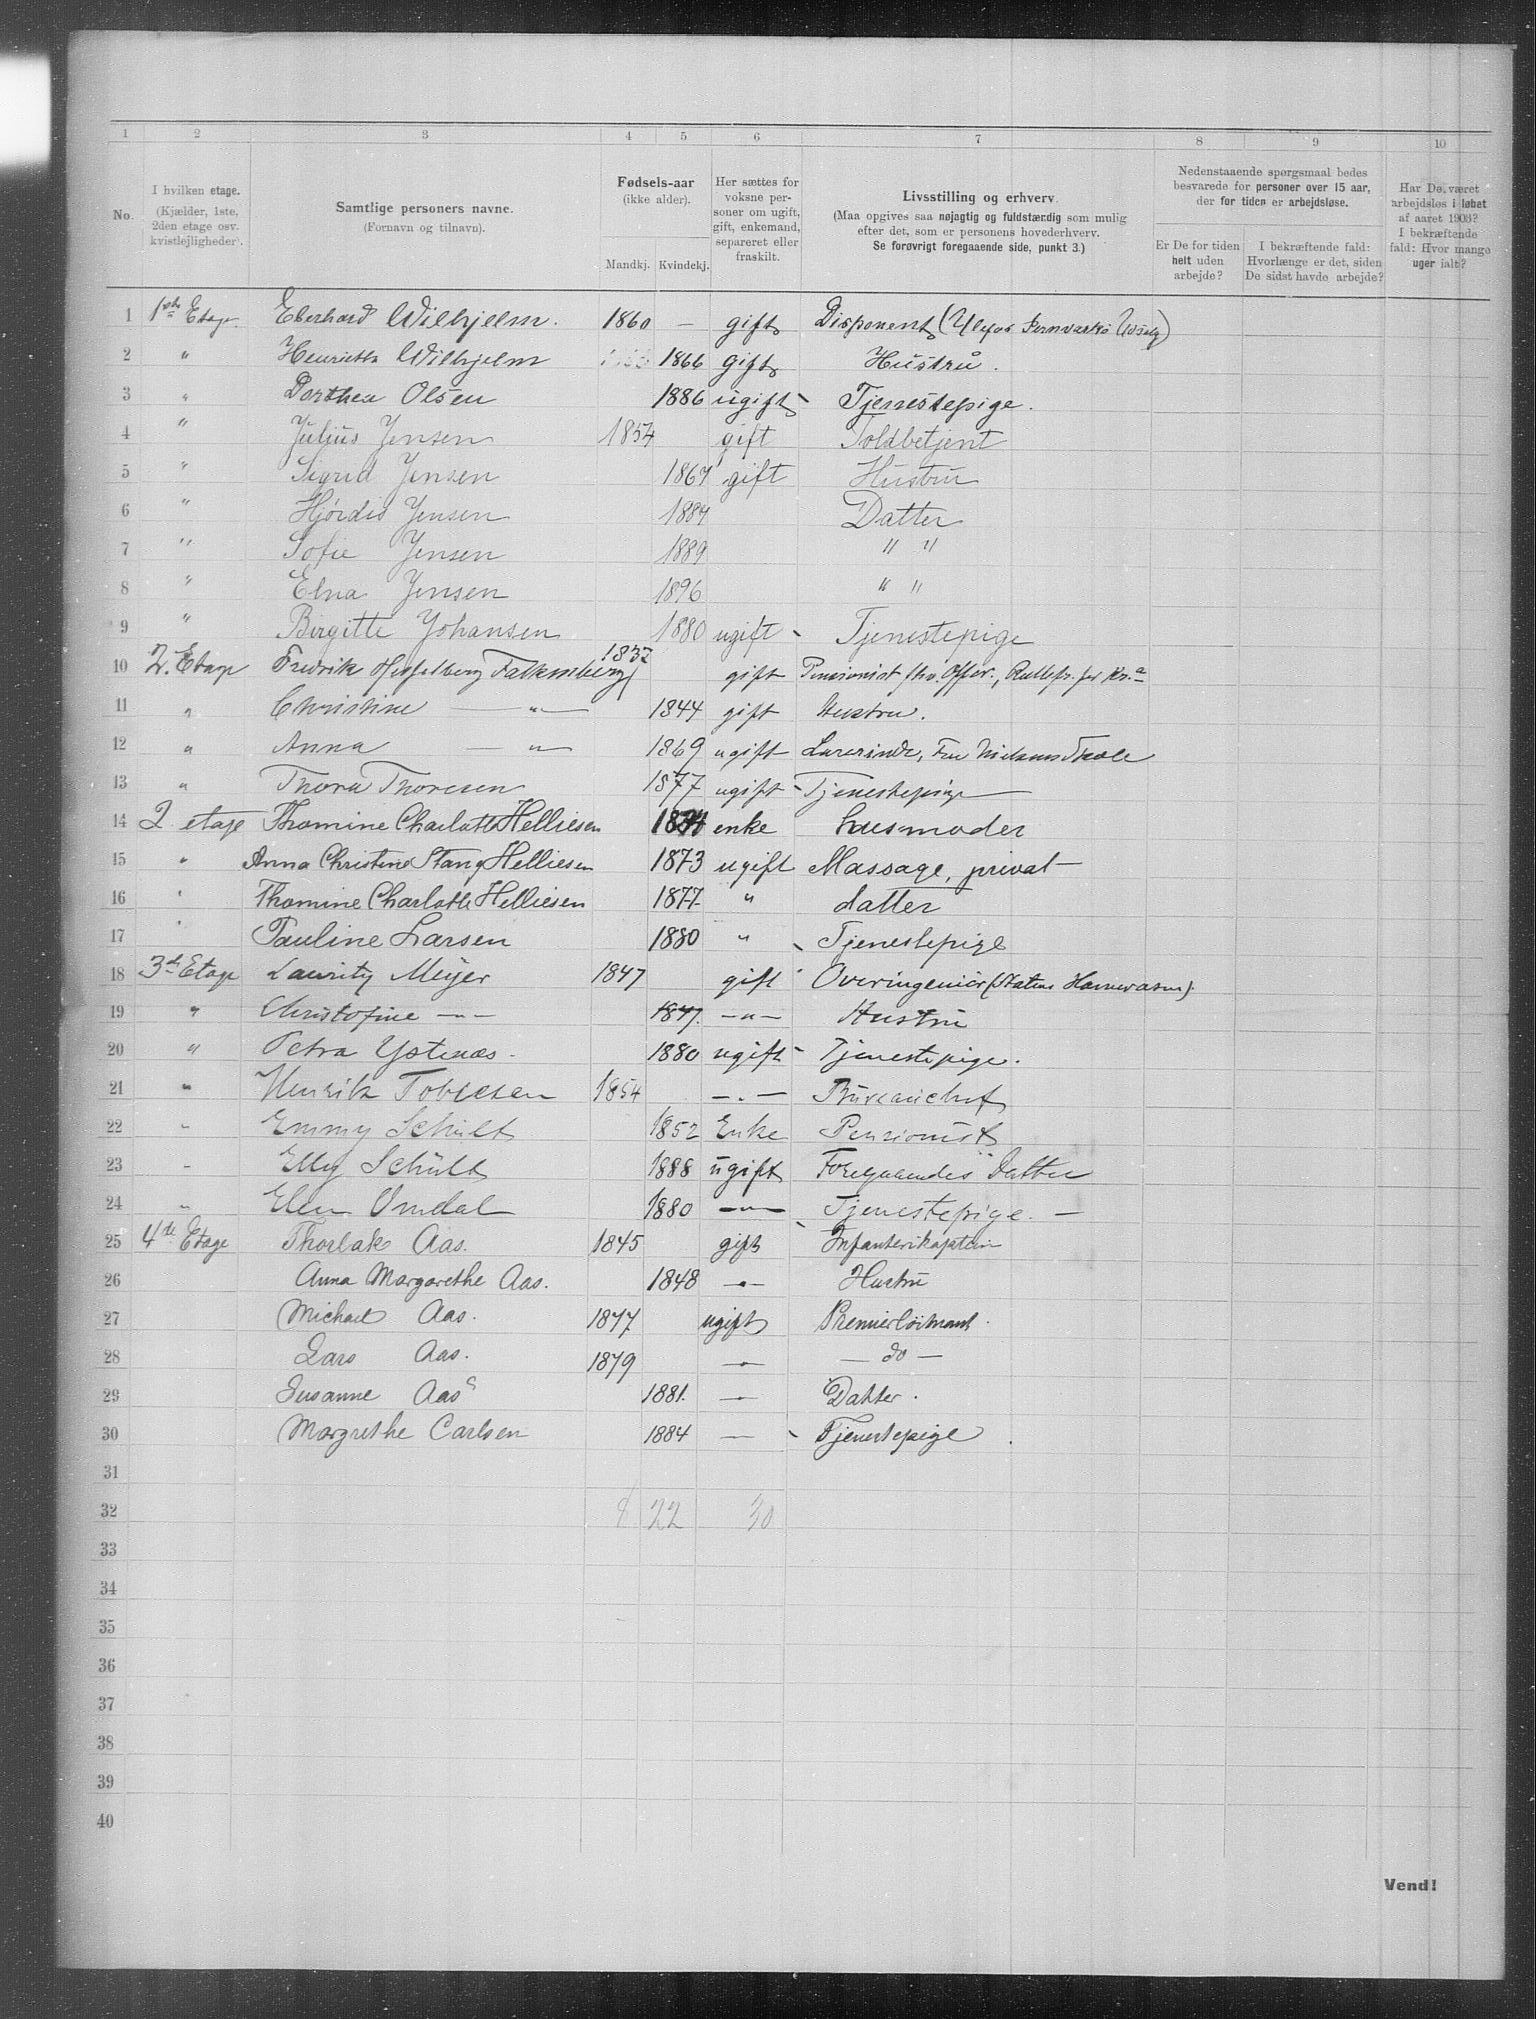 1 2 3 4 5 6 7 8 9 10
No. I hvilken etage. (Kjælder, 1ste, 2den etage osv. kvistlejligheder). Samtlige personers navne. (Fornavn og tilnavn). Fødsels-aar (ikke alder). Mandkj. Kvindekj. Her sættes for voksne personer om ugift, gift, enkemand, separeret eller fraskilt. Livsstilling og erhverv. (Maa opgives saa nøjagtig og fuldstændig som mulig efter det, som er personens hovederhverv. Se forøvrigt foregaaende side, punkt 3.) Nedenstaaende spørgsmaal bedes besvarede for personer over 15 aar, der for tiden er arbejdsløse. Er De for tiden helt uden arbejde? I bekræftende fald: Hvorlænge er det, siden De sidst havde arbejde? Har De været arbejdsløs i løbet af aaret 1903? I bekræftende fald: Hvor mange uger ialt?
1 1ste Etage. Eberhard Wilhjelm. 1860 — gift Disponent (Ulefos Jernværks Udsalg)
2 " Henrietta Wilhjelm 1866 gift Hustru.
3 " Dorthea Olsen 1886 ugift Tjenestepige.
4 " Julius Jensen 1854 gift Toldbetjent
5 " Sigrid Jensen 1867 gift Hustru
6 " Hjørdis Jensen 1884 Datter
7 " Sofie Jensen 1889 " "
8 " Elna Jensen 1896 " "
9 " Birgitte Johansen 1880 ugift Tjenestepige
10 2. Etage Fredrik Hesselberg Falkenberg 1832 gift Pensionist
11 " Christine — " — 1844 gift Hustru.
12 " Anna — " — 1869 ugift Lærerinde, Frk Nielsens Skole
13 " Thora Thoresen 1877 ugift Tjenestepige
14 2 etage Thomine Charlotte Helliesen enke husmoder
15 " Anna Christine Stang Helliesen 1873 ugift Massage, privat
16 " Thomine Charlotte Helliesen 1877. " datter
17 " Pauline Larsen 1880 " Tjenestepige
18 3de Etage Lauritz Meijer 1847 gift Overingeniør (Statens Havnevæsen).
19 " Christofine — " — 1847. — " — Hustru
20 " Petra Ystenæs. 1880 ugift Tjenestepige.
21 " Henrik Tobiesen 1854 — " — Bureauchef
22 " Emmy Schült 1852 Enke Pensionist
23 " Elly Schült 1888 ugift Foregaaendes Datter
24 " Elen Omdal 1880 — " — Tjenestepige. —
25 4de Etage Thorlak Aas. 1845 gift Infanterikaptein
26 Anna Margarethe Aas. 1848 — " — Hustru
27 Michael Aas. 1877 ugift Premierløitnant.
28 Lars Aas. 1879 — " — — do —
29 Susanne Aas 1881. — " — Datter.
30 Margrethe Carlsen 1884 — Tjenestepige.
31
32 8 22 30
33
34
35
36
37
38
39
40
Vend!